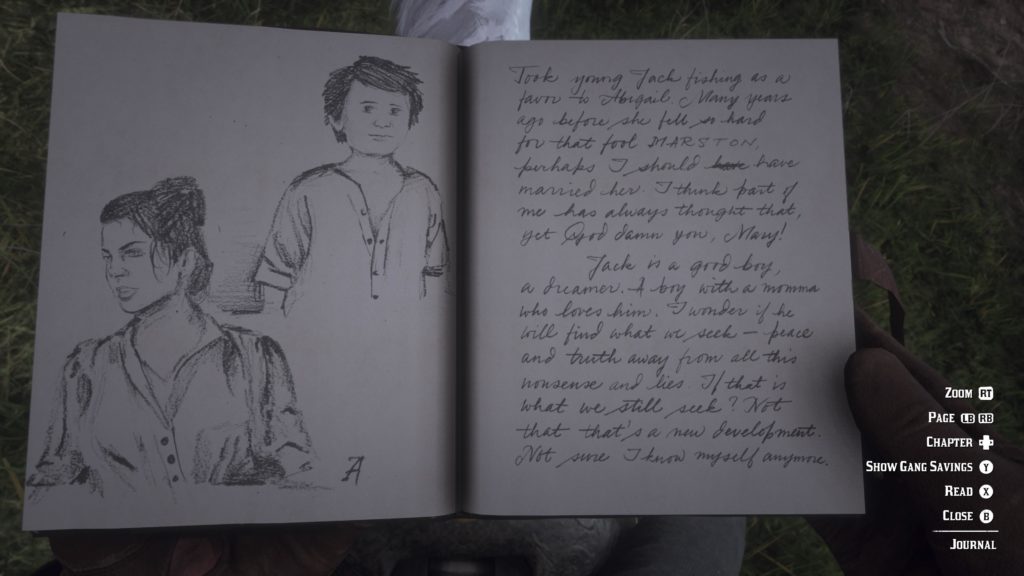 Took young Jack fishing as a
favor to Abigail. Many years
ago before she fell so hard
for that fool MARSTON,
perhaps I should have have
married her. I think part of
me has always thought that,
yet God damn you, Mary!
Jack is a good boy,
a dreamer. A boy with a momma
who loves him. I wonder if he
will find what we seek – peace
and truth away from all this
nonsense and lies. If that is
what we still seek? Not
that that's a new development.
Not sure I know myself anymore.
A
ZOOM RT
PAGE LB RB
CHAPTER
SHOW GANG SAVINGS Y
READ X
CLOSE B
JOURNAL